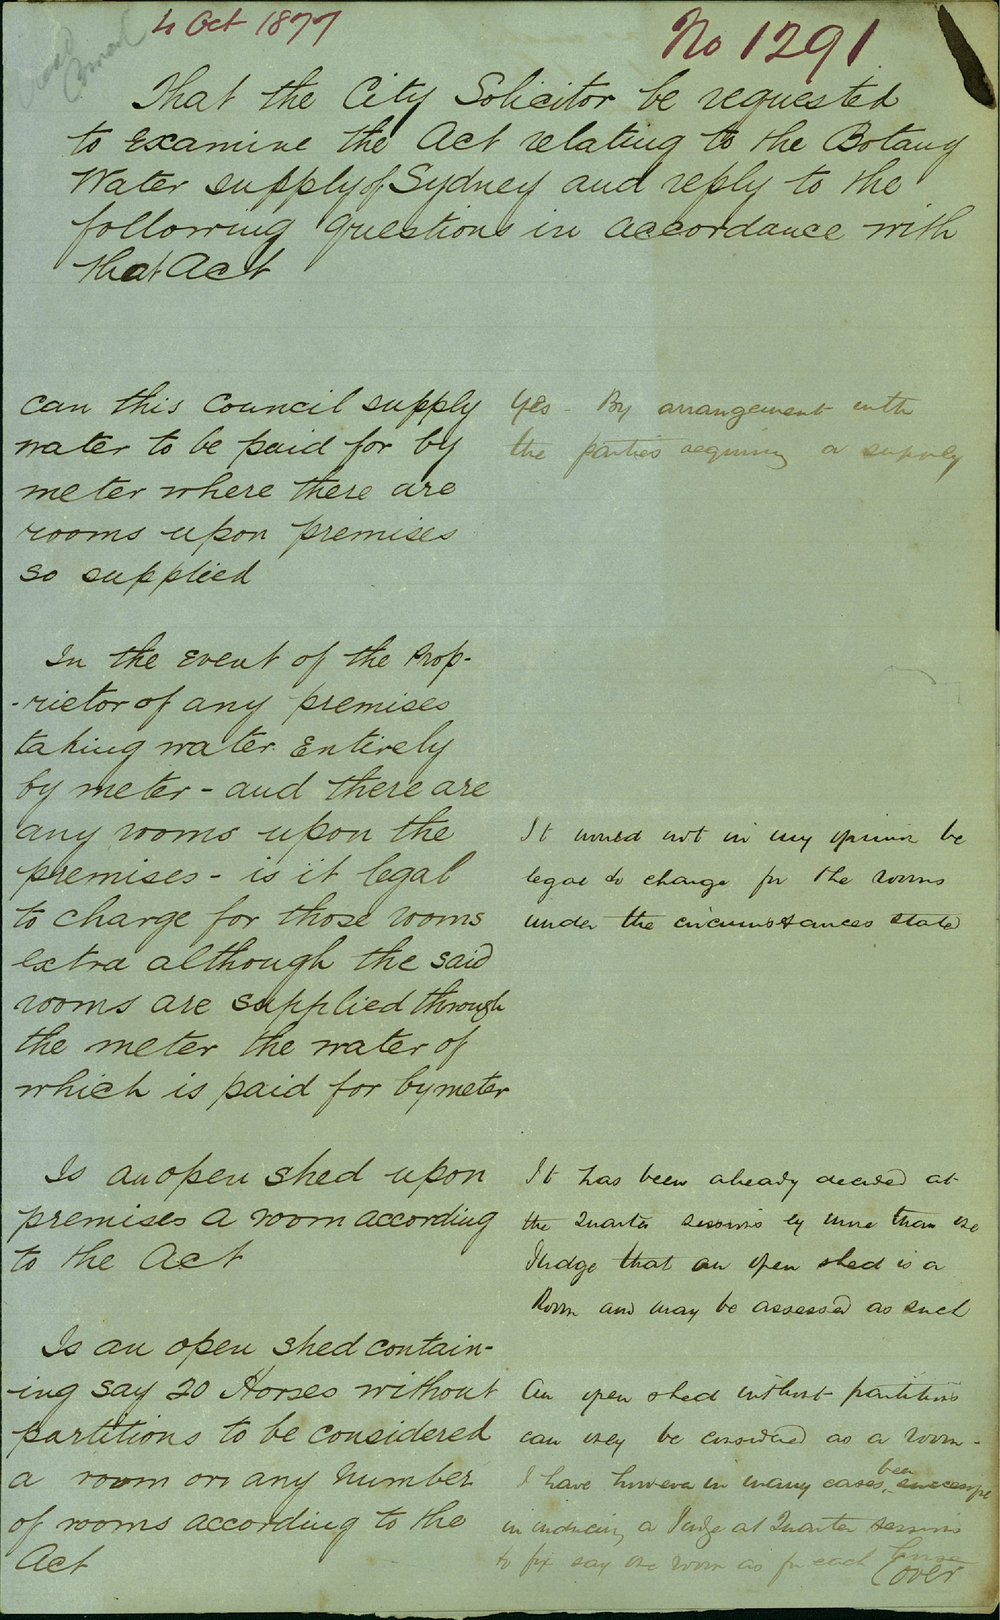 4 Oct 1877
No 1291
That the City Solicitor be requested
to Examine the Act relating to the Botany
Water supply of Sydney and reply to the
following questions in accordance with
that Act
Can this Council supply
water to be paid for by
meter where there are
rooms upon premises
so supplied
Yes - By arrangement with
the parties requiring a supply
In the Event of the Prop-
-rietor of any premises
taking water Entirely
by meter - and there are
any rooms upon the
premises - is it legal
to charge for those rooms
extra although the said
rooms are supplied through
the meter the water of
which is paid for by meter
It would not in my opinion be
legal to charge for the rooms
under the circumstances stated
Is an open shed upon
premises a room according
to the Act
It has been already decided at
the Quarter Sessions by more than one
Judge that an open shed is a
Room and may be assessed as such
Is an open shed contain-
-ing say 20 Horses without
partitions to be considered
a room or any number
of rooms according to the
Act
An open shed without partitions
can only be considered as a room -
I have however in many cases been successful
in inducing a Judge at Quarter Sessions
to fix say one room as for each horse
(over